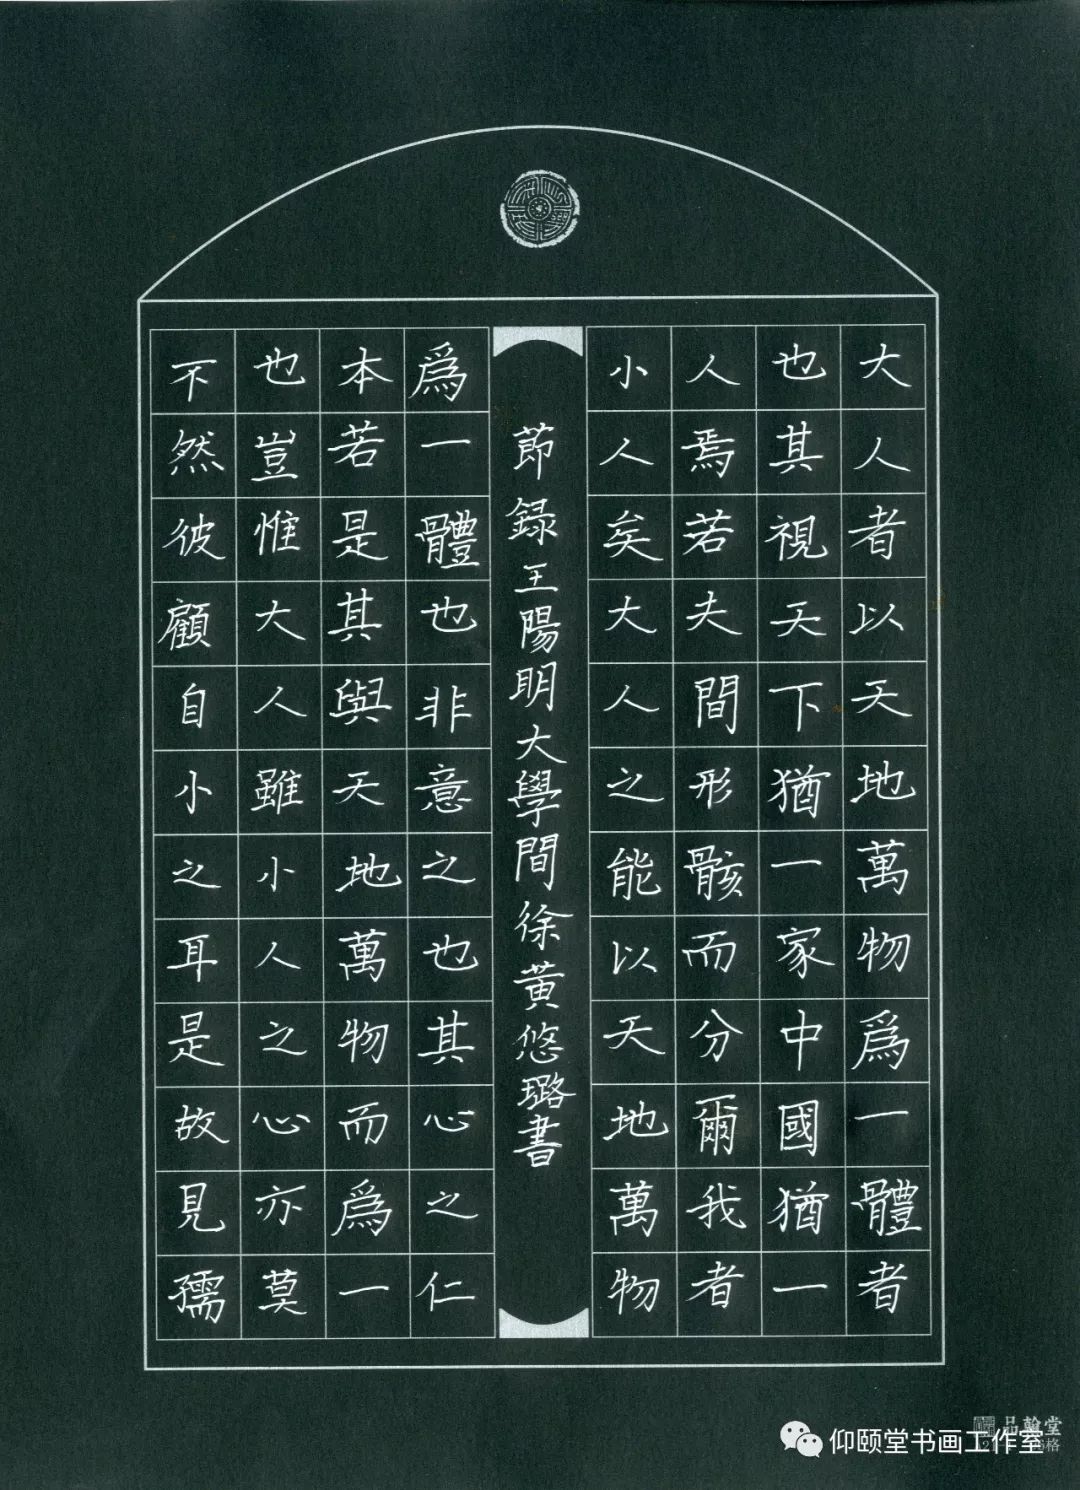 大人者以天地萬物爲一體者
也其視天下猶一家中國猶一
人焉若夫間形骸而分爾我者
小人矣大人之能以天地萬物
節録王陽明大學間徐黄悠璐書
爲一體也非意之也其心之仁
本若是其與天地萬物而爲一
也豈惟大人雖小人之心亦莫
不然彼顧自小之耳是故見孺
品翰堂
仰颐堂书画工作室